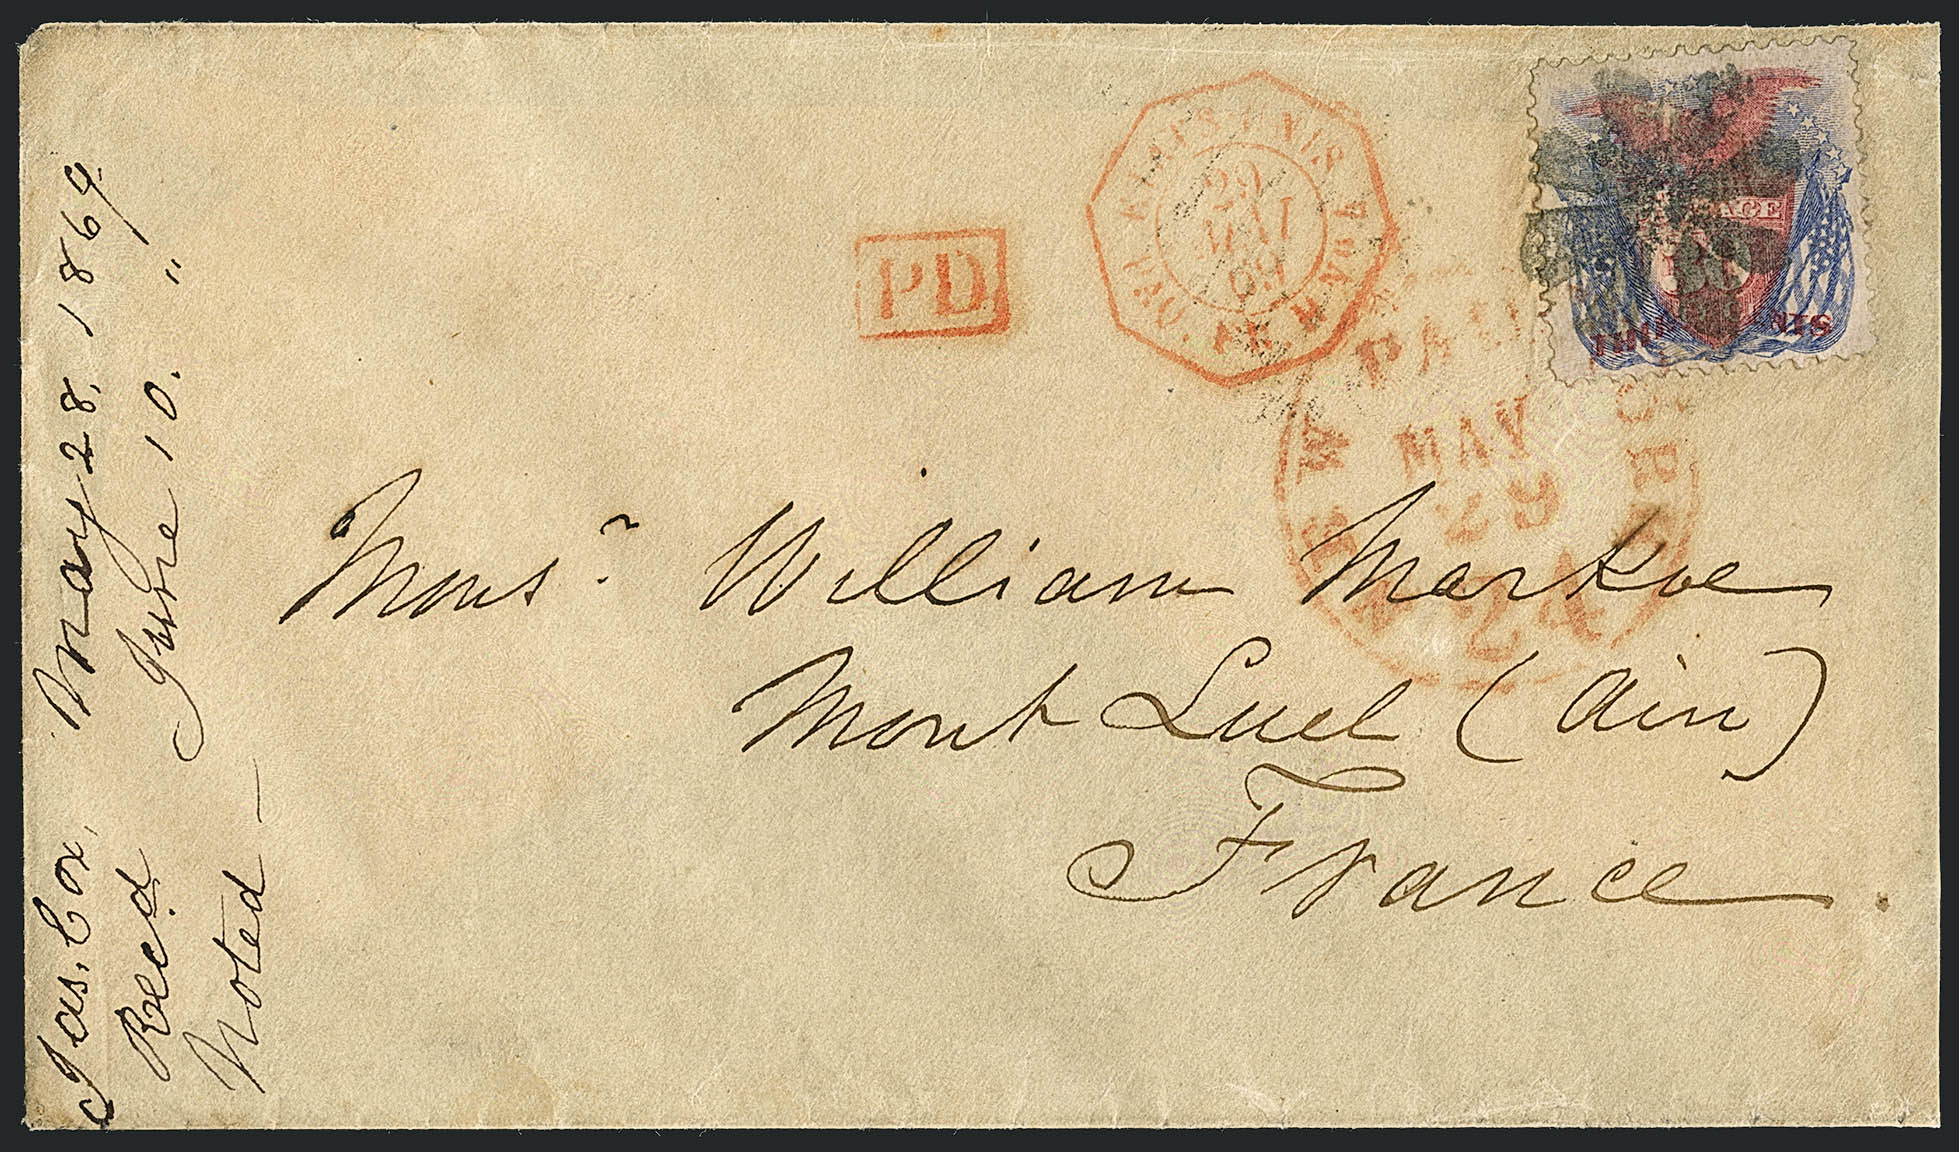 Jas. Cox, May 28, 1869
Rec'd June 10. "
Noted —
PD
29
MAI
69
PAID
MAY
NEW YORK
POSTAGE
30
THIRTY CENTS
Monsr William Markoe
Mont Luel (Ain)
France.